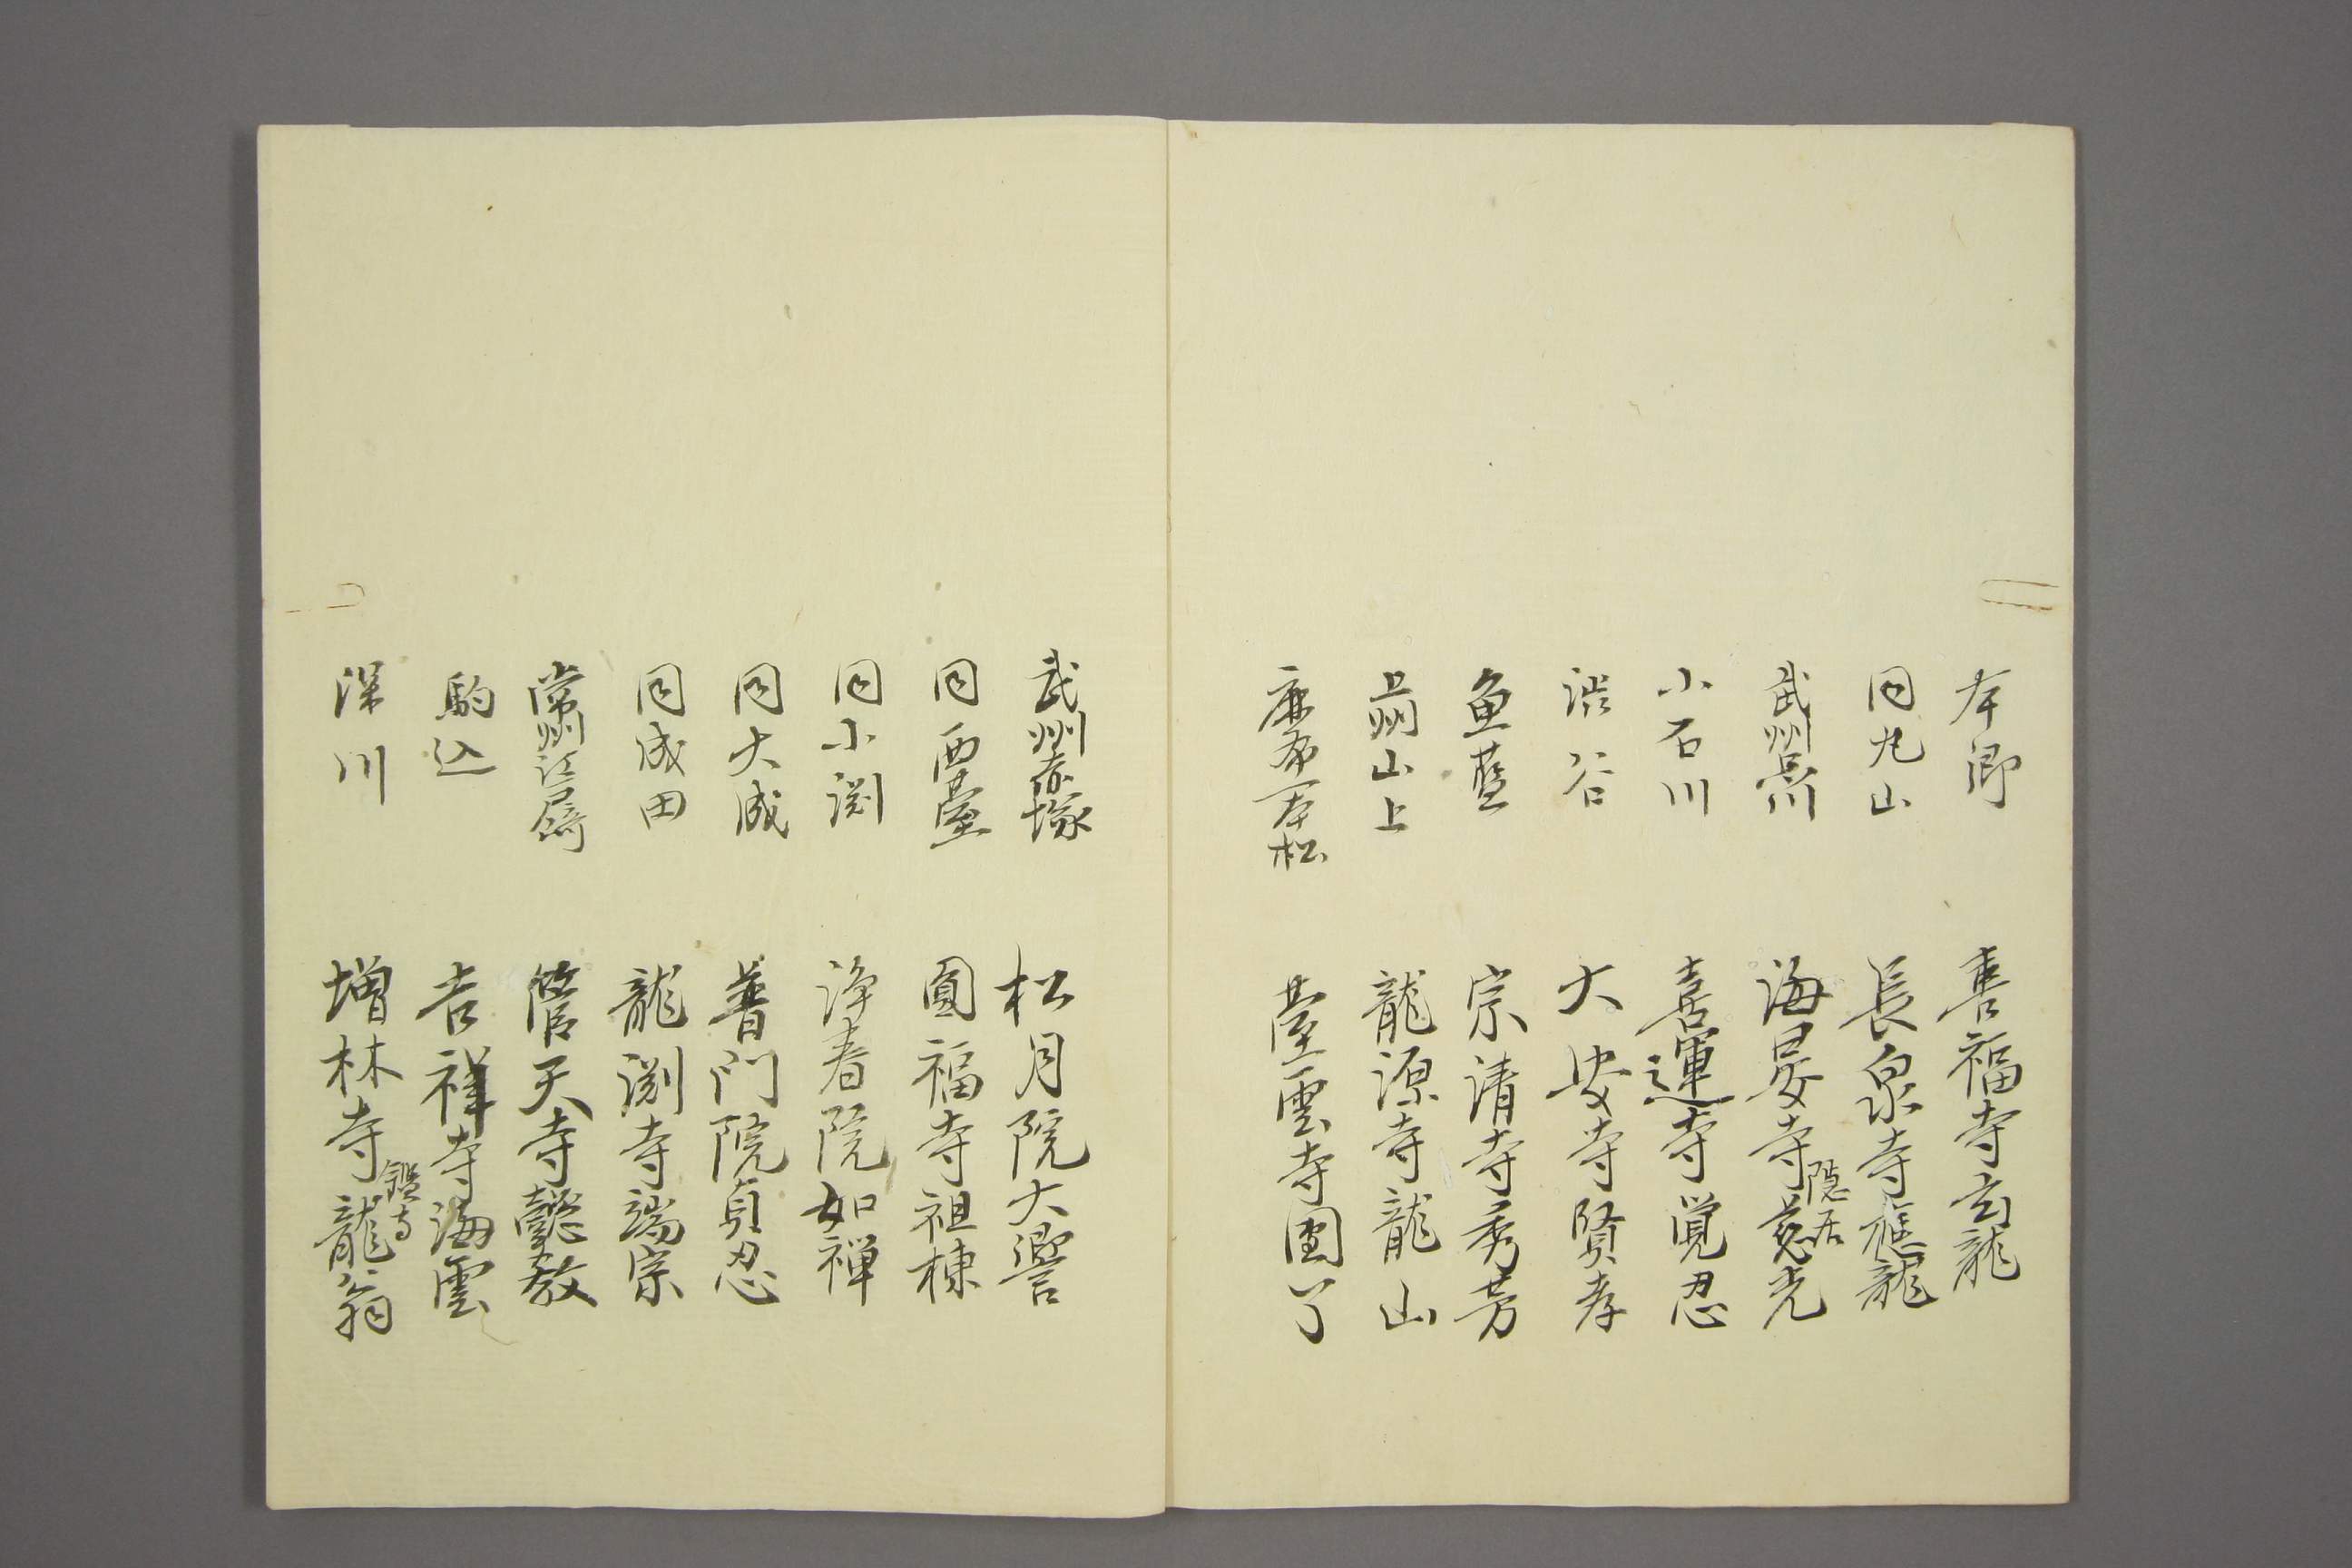 本郷 喜福寺玄龍
同丸山 長泉寺穏龍
武州品川 海晏寺隠居慈光
小石川 喜運寺覚忍
渋谷 大安寺賢孝
魚藍 宗清寺秀芳
上州山上 龍源寺龍山
麻布一本松 臺雲寺圓了
武州赤塚 松月院大譽
同西臺 圓福寺祖棟
同小渕 浄春院如禅
同大成 普門院貞忍
同成田 龍渕寺端宗
常州江戸崎 管天寺懿教
駒込 吉祥寺海雲
深川 増林寺鑑寺龍翁